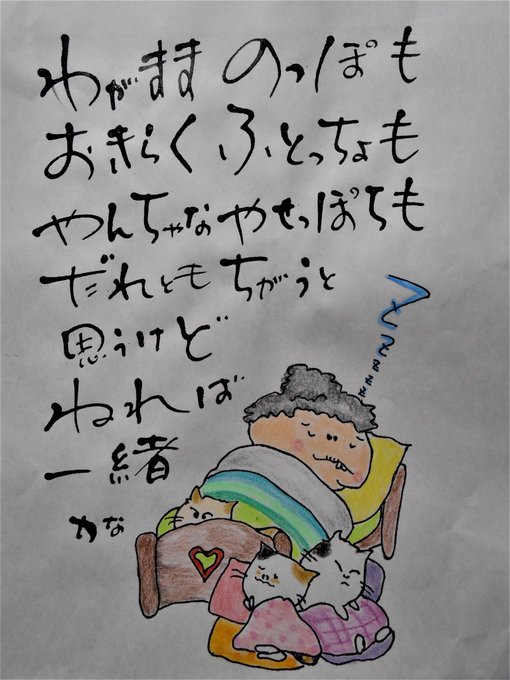 わがまま のっぽも
おきらく ふとっちょも
やんちゃな やせっぽちも
だれとも ちがうと
思うけど
ねれば
一緒
かな